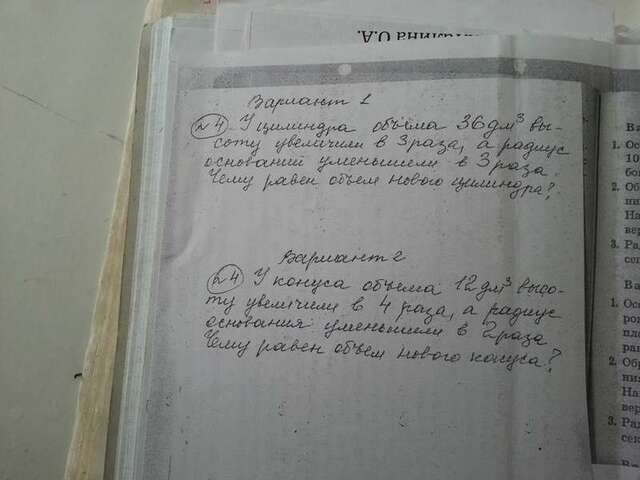 Вариант 1
№4 У цилиндра объема 36 дм³ вы-
соту увеличили в 3 раза, а радиус
оснований уменьшили в 3 раза.
Чему равен объем нового цилиндра?
Вариант 2
№4 У конуса объема 12 дм³ высо-
ту увеличили в 4 раза, а радиус
основания уменьшили в 2 раза
Чему равен объем нового конуса?
О.А.
1. Ос
10
бо
2. Об
ни
На
вер
3. Ра
сеч
1. Ос
рон
пло
раш
2. Обр
низ
На
вер
3. Рад
сек